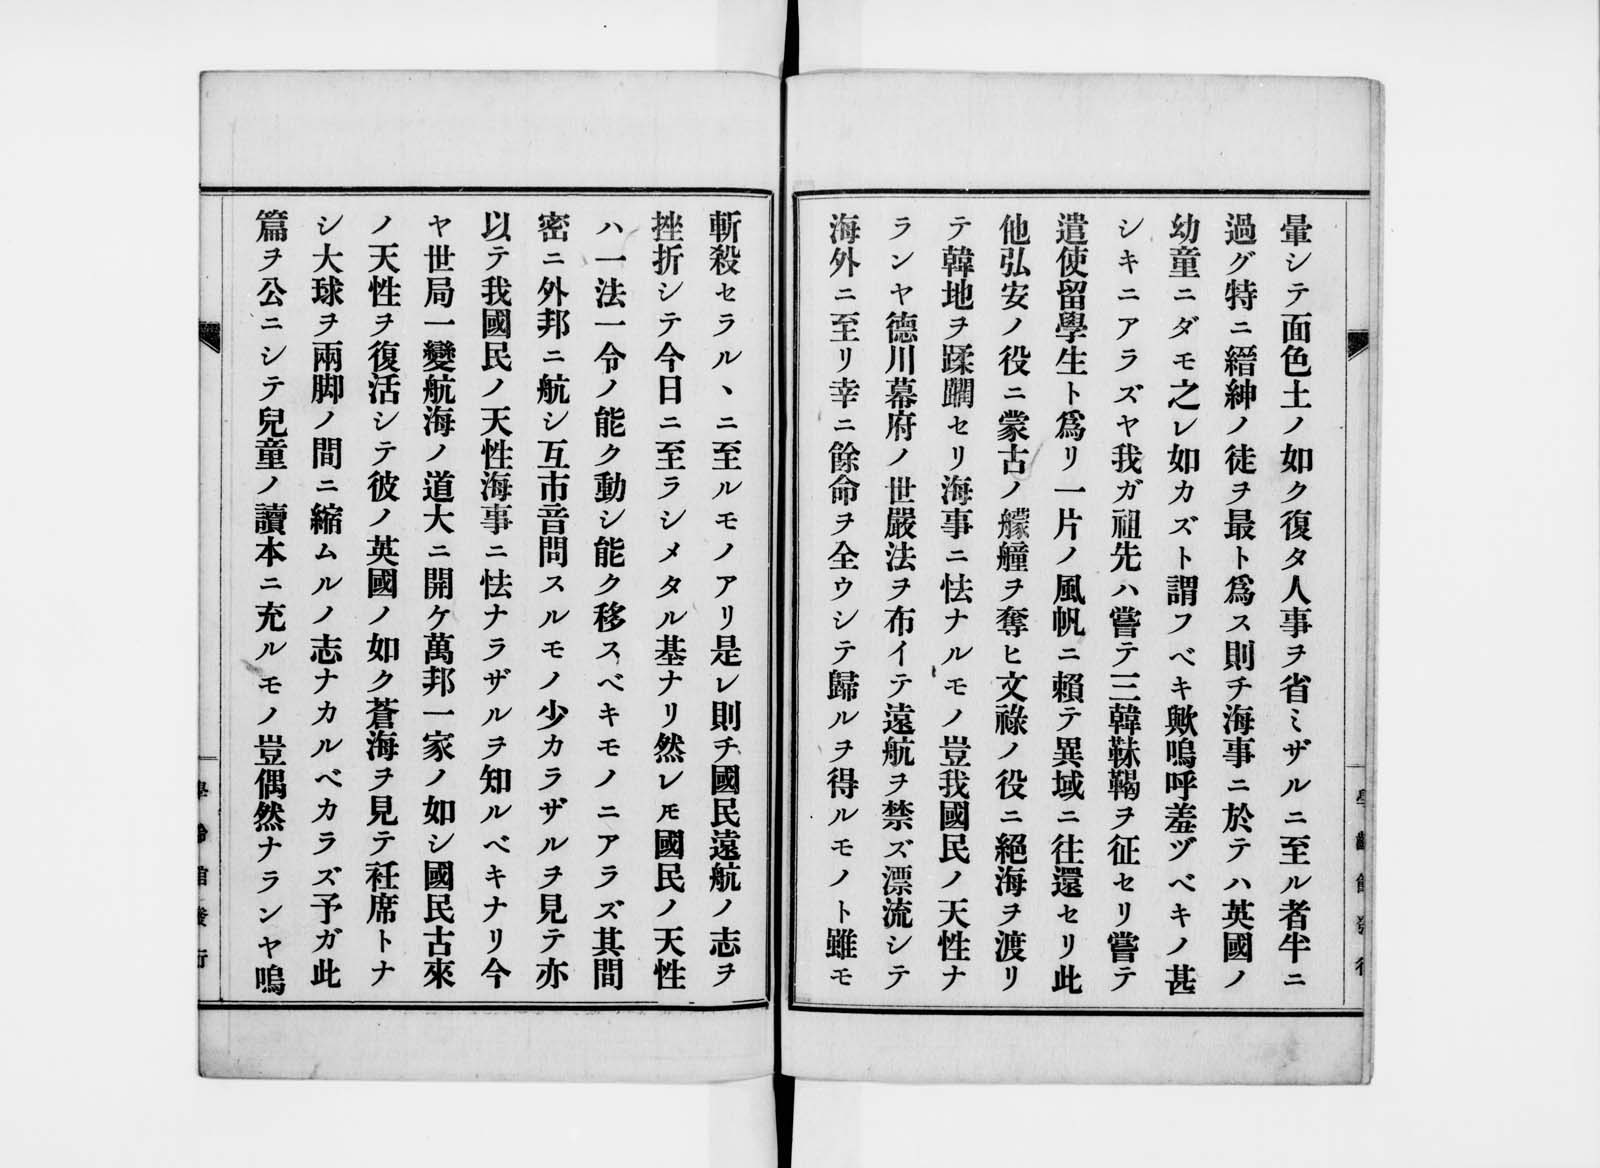 暈シテ面色土ノ如ク復タ人事ヲ省ミザルニ至ル者半ニ
過グ特ニ縉紳ノ徒ヲ最ト爲ス則チ海事ニ於テハ英國ノ
幼童ニダモ之レ如カズト謂フベキ歟嗚呼羞ヅベキノ甚
シキニアラズヤ我ガ祖先ハ嘗テ三韓靺鞨ヲ征セリ嘗テ
遣使留學生ト爲リ一片ノ風帆ニ賴テ異域ニ往還セリ此
他弘安ノ役ニ蒙古ノ艨艟ヲ奪ヒ文祿ノ役ニ絕海ヲ渡リ
テ韓地ヲ蹂躙セリ海事ニ怯ナルモノ豈我國民ノ天性ナ
ランヤ德川幕府ノ世嚴法ヲ布イテ遠航ヲ禁ズ漂流シテ
海外ニ至リ幸ニ餘命ヲ全ウシテ歸ルヲ得ルモノト雖モ
學齡館發行
斬殺セラルヽニ至ルモノアリ是レ則チ國民遠航ノ志ヲ
挫折シテ今日ニ至ラシメタル基ナリ然レ𪜈國民ノ天性
ハ一法一令ノ能ク動シ能ク移スベキモノニアラズ其間
密ニ外邦ニ航シ互市音問スルモノ少カラザルヲ見テ亦
以テ我國民ノ天性海事ニ怯ナラザルヲ知ルベキナリ今
ヤ世局一變航海ノ道大ニ開ケ萬邦一家ノ如シ國民古來
ノ天性ヲ復活シテ彼ノ英國ノ如ク蒼海ヲ見テ衽席トナ
シ大球ヲ兩脚ノ間ニ縮ムルノ志ナカルベカラズ予ガ此
篇ヲ公ニシテ兒童ノ讀本ニ充ルモノ豈偶然ナランヤ嗚
學齡館發行